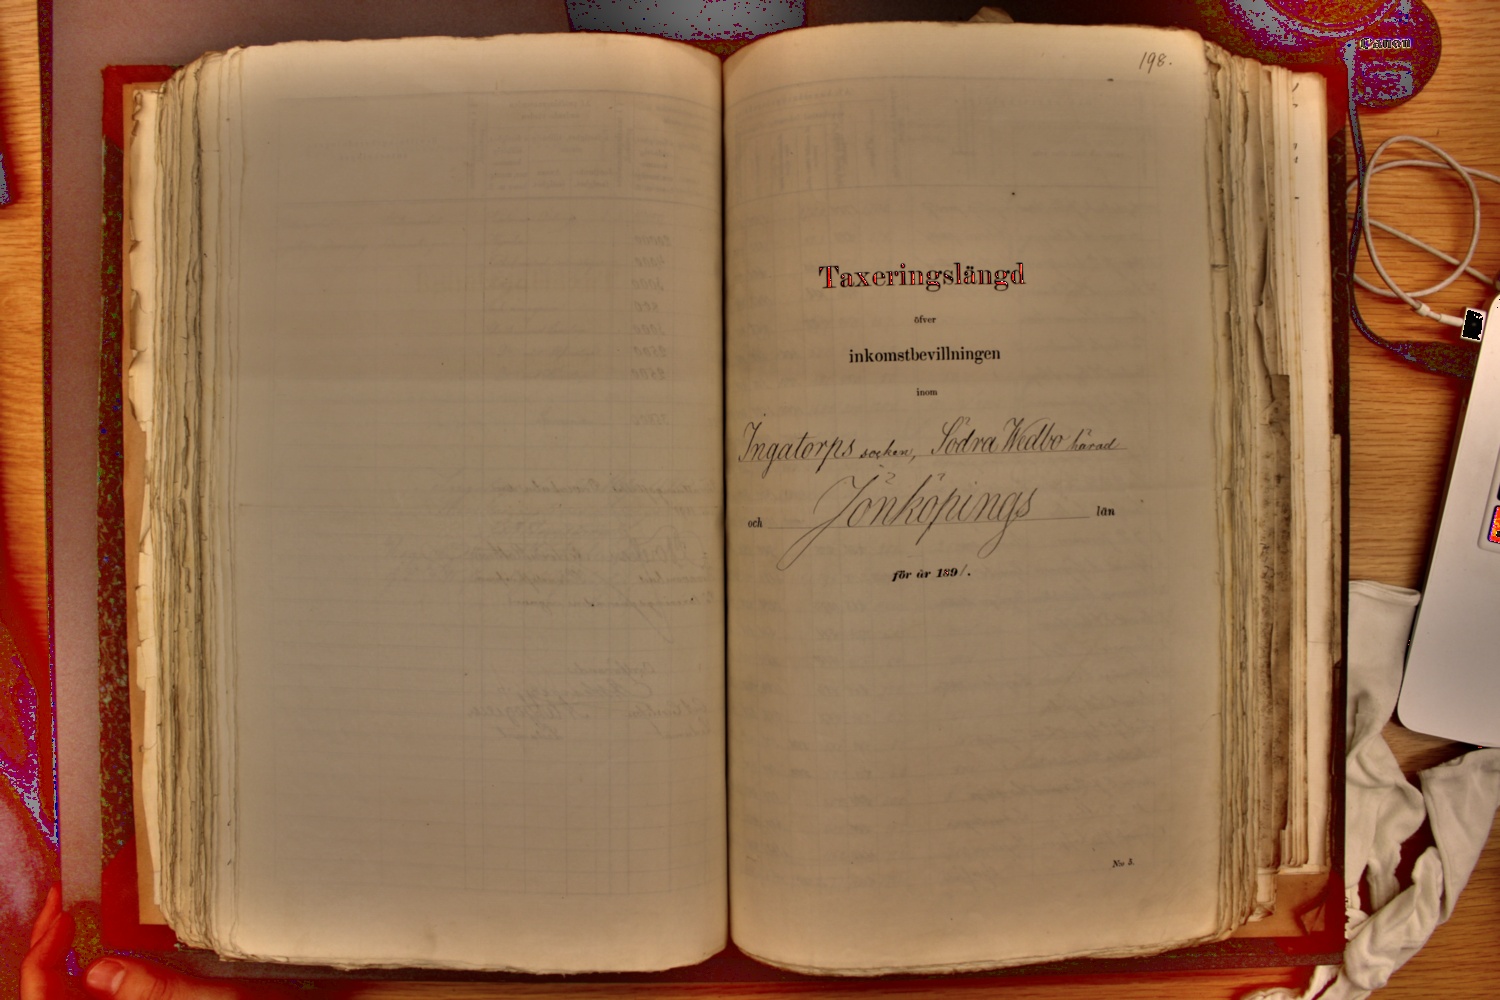 Canon
198.
Taxeringslängd
öfver
inkomstbevillningen
inom
Ingatorps socken, Södra Wedbo härad
och Jönköpings län
för år 1891.
N:o 5.